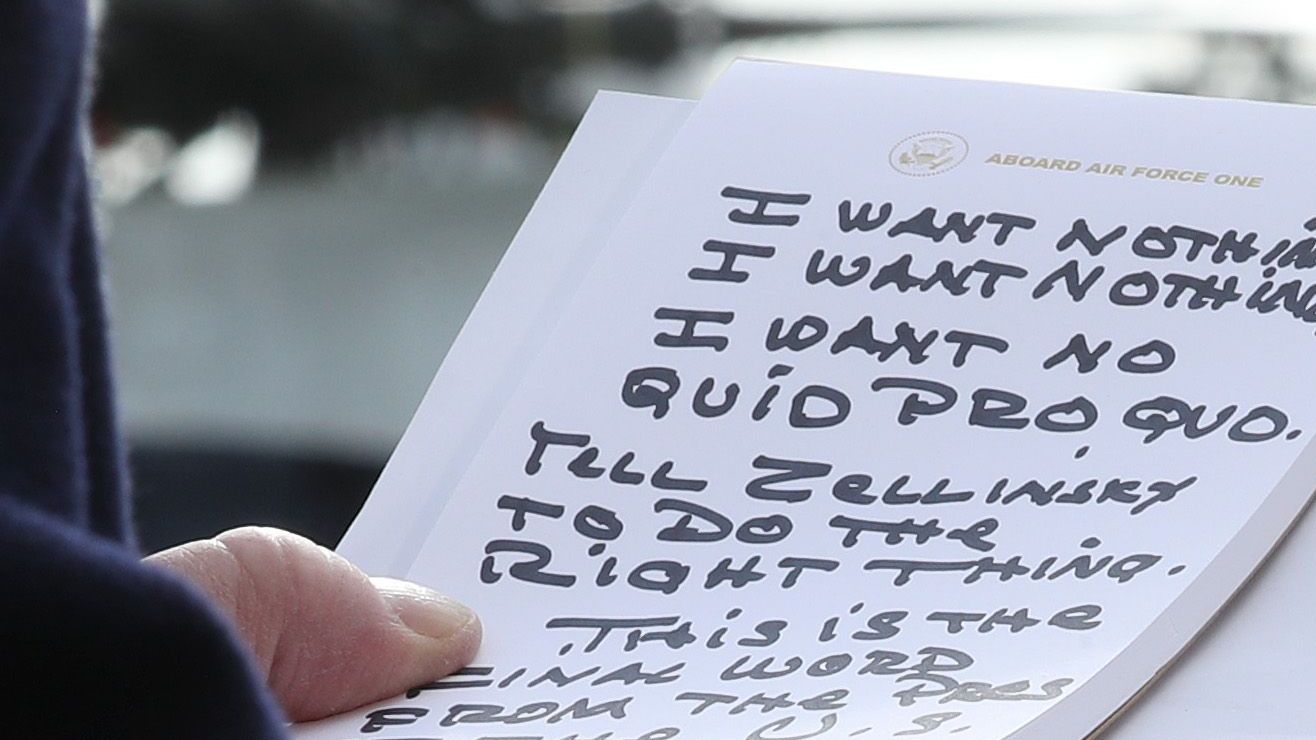 ABOARD AIR FORCE ONE
I WANT NOTHIN
I WANT NOTHIN
I WANT NO
QUID PRO QUO.
TELL ZELLINSKY
TO DO THE
RIGHT THING.
THIS IS THE
FINAL WORD
FROM THE PRES
THE U.S.